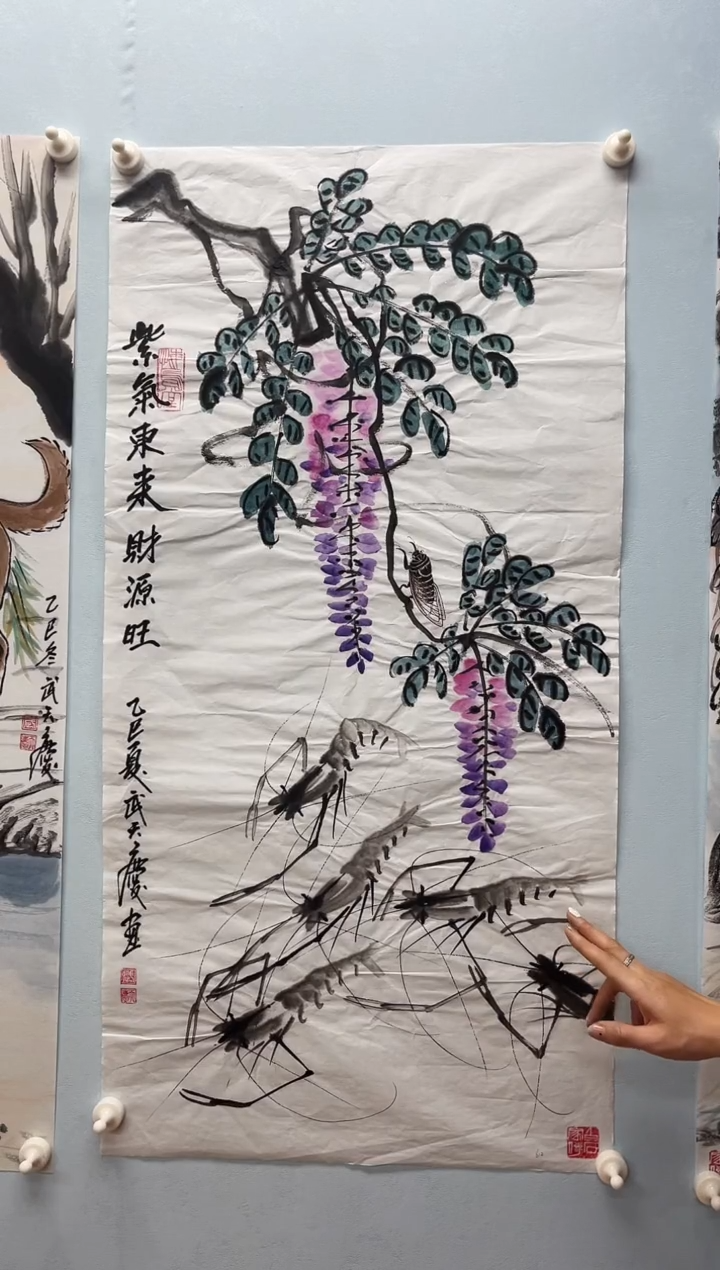 紫氣東来財源旺
乙巳夏武天慶画
乙巳冬武天慶